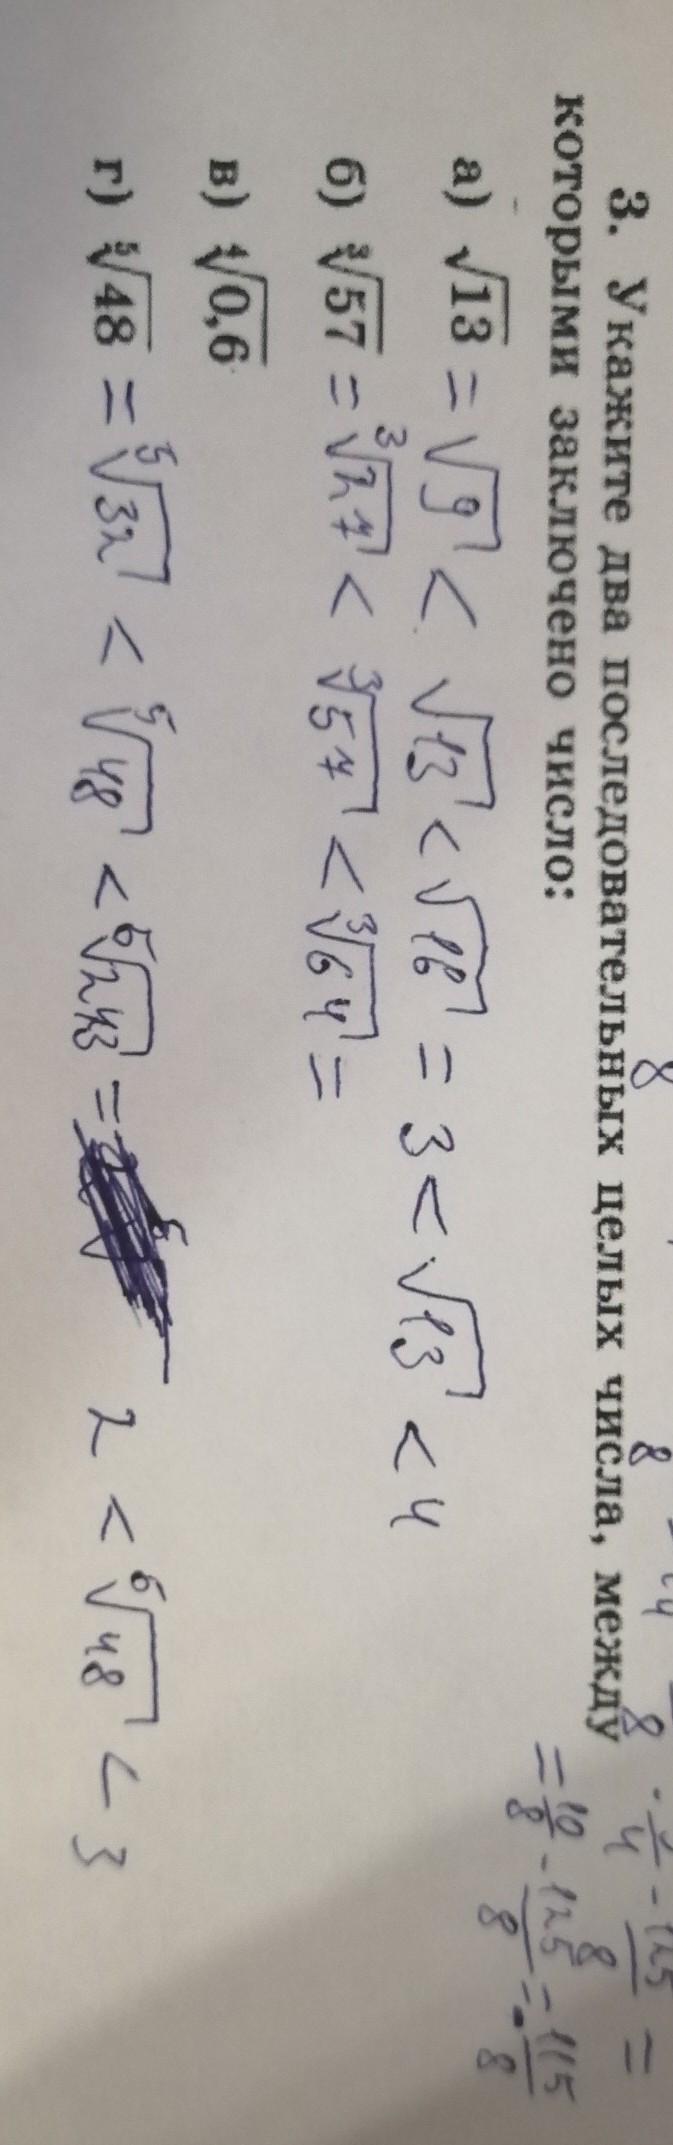 3. Укажите два последовательных целых числа, между
которыми заключено число:
а) √13 = √9 < √13 < √16 = 3 < √13 < 4
б) ∛57 = ∛27 < ∛57 < ∛64 =
в) ∜0,6
г) ⁵√48 = ⁵√32 < ⁵√48 < ⁵√243 = 2 < ⁵√48 < 3
= 10/8 - 125/8 = - 115/8